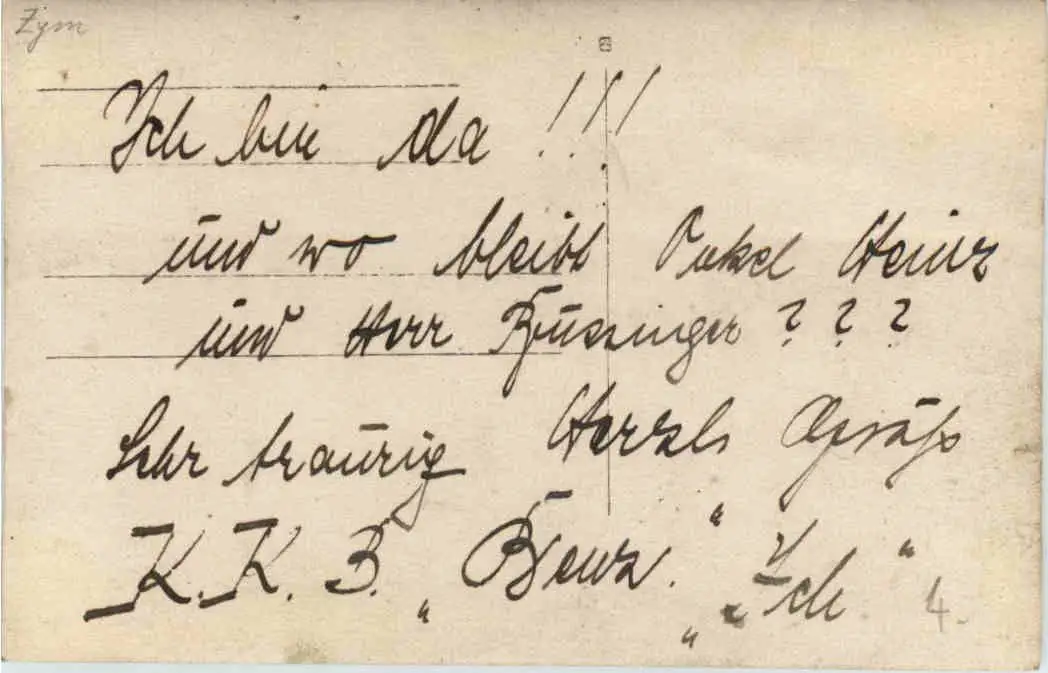 Zym
Ich bin da !!!
und wo bleibt Onkel Heinz
und Herr Bussinger ???
Sehr traurig Herzls
K. K. B. „ Benz. “ „ Ich “ 4.